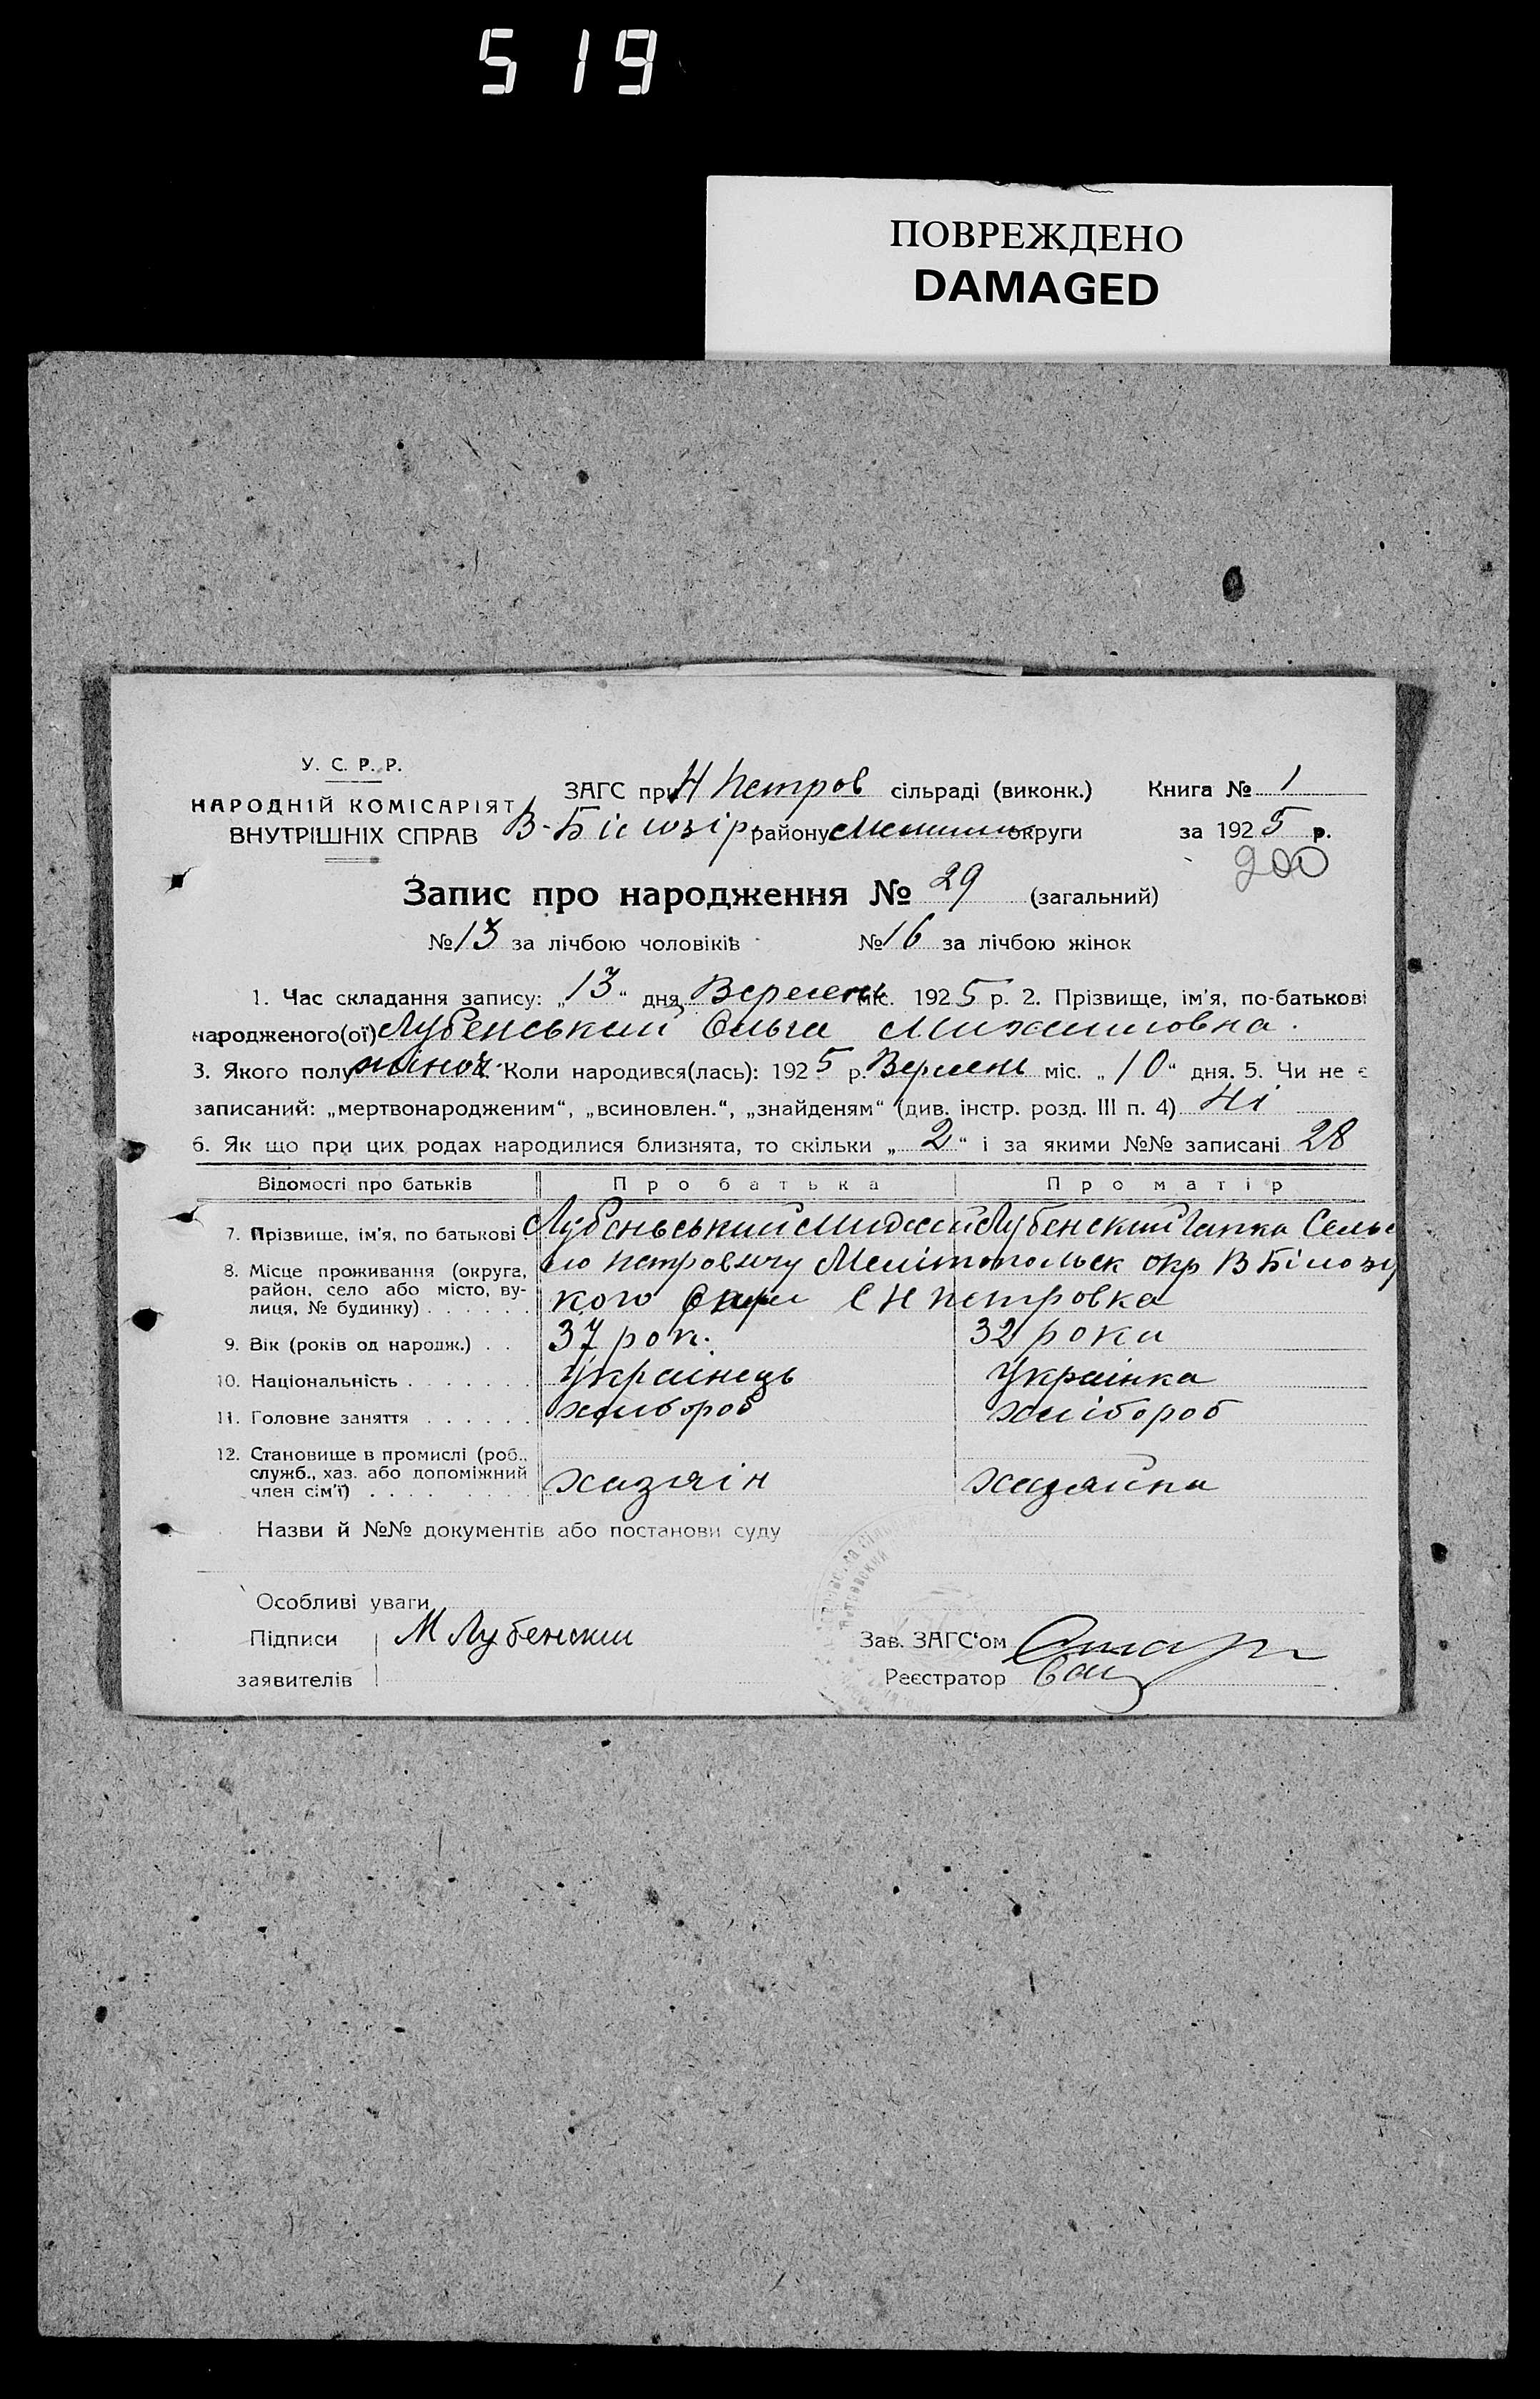 519
ПОВРЕЖДЕНО
DAMAGED
У. С. Р. Р.
НАРОДНІЙ КОМІСАРІЯТ
ВНУТРІШНІХ СПРАВ
ЗАГС при Н Петров сільраді (виконк.) Книга № 1
В-Білозір району округи за 1925 р.
200
Запис про народження № 29 (загальний)
№ 13 за лічбою чоловіків № 16 за лічбою жінок
1. Час складання запису: „13" дня Вересень міс. 1925 р. 2. Прізвище, ім'я, по-батькові
народженого(ої) Лубенський Ольга Михайловна.
3. Якого полу жіноч. Коли народився(лась): 1925 р. Вересень міс. „10" дня. 5. Чи не є
записаний: „мертвонародженим", „всиновлен.", „знайденям" (див. інстр. розд. III п. 4) Ні
6. Як що при цих родах народилися близнята, то скільки „2" і за якими №№ записані 28
Відомості про батьків Про батька Про матір
7. Прізвище, ім'я, по батькові. Лубеньський Михай Лубенский Гапка
8. Місце проживання (округа, ло Петрович Мелітопольск окр В Білозі
район, село або місто, ву-
лиця, № будинку) . . . . . . кого С Н Петровка
9. Вік (років од народж.) . . 37 рок. 32 роки
10. Національність . . . . . . . Українець Українка
11. Головне заняття . . . . . . хлибороб хлібороб
12. Становище в промислі (роб.,
служб., хаз. або допоміжний
член сім'ї) . . . . . . . . . хазяін хазяйка
Назви й №№ документів або постанови суду
Особливі уваги
Підписи М Лубенский Зав. ЗАГС'ом
заявителів Реєстратор